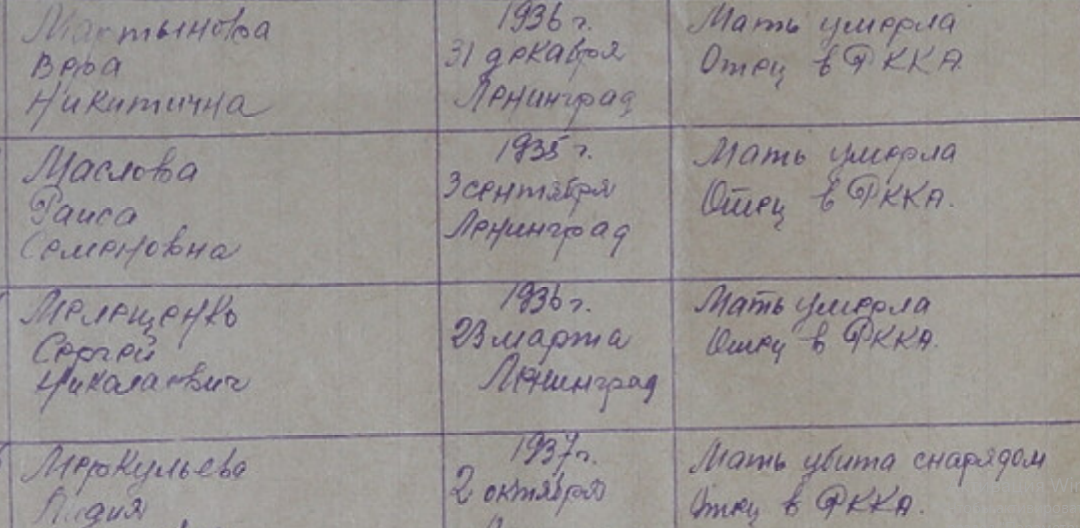 Мартынова
Вера
Никитична
1936 г.
31 декабря
Ленинград
Мать умерла
Отец в РККА.
Маслова
Раиса
Семеновна
1935 г.
3 сентября
Ленинград
Мать умерла
Отец в РККА.
Мелещенко
Сергей
Николаевич
1936 г.
23 марта
Ленинград
Мать умерла
Отец в РККА.
Меркульева
Лидия
1937 г.
2 октября
Мать убита снарядом
Отец в РККА.